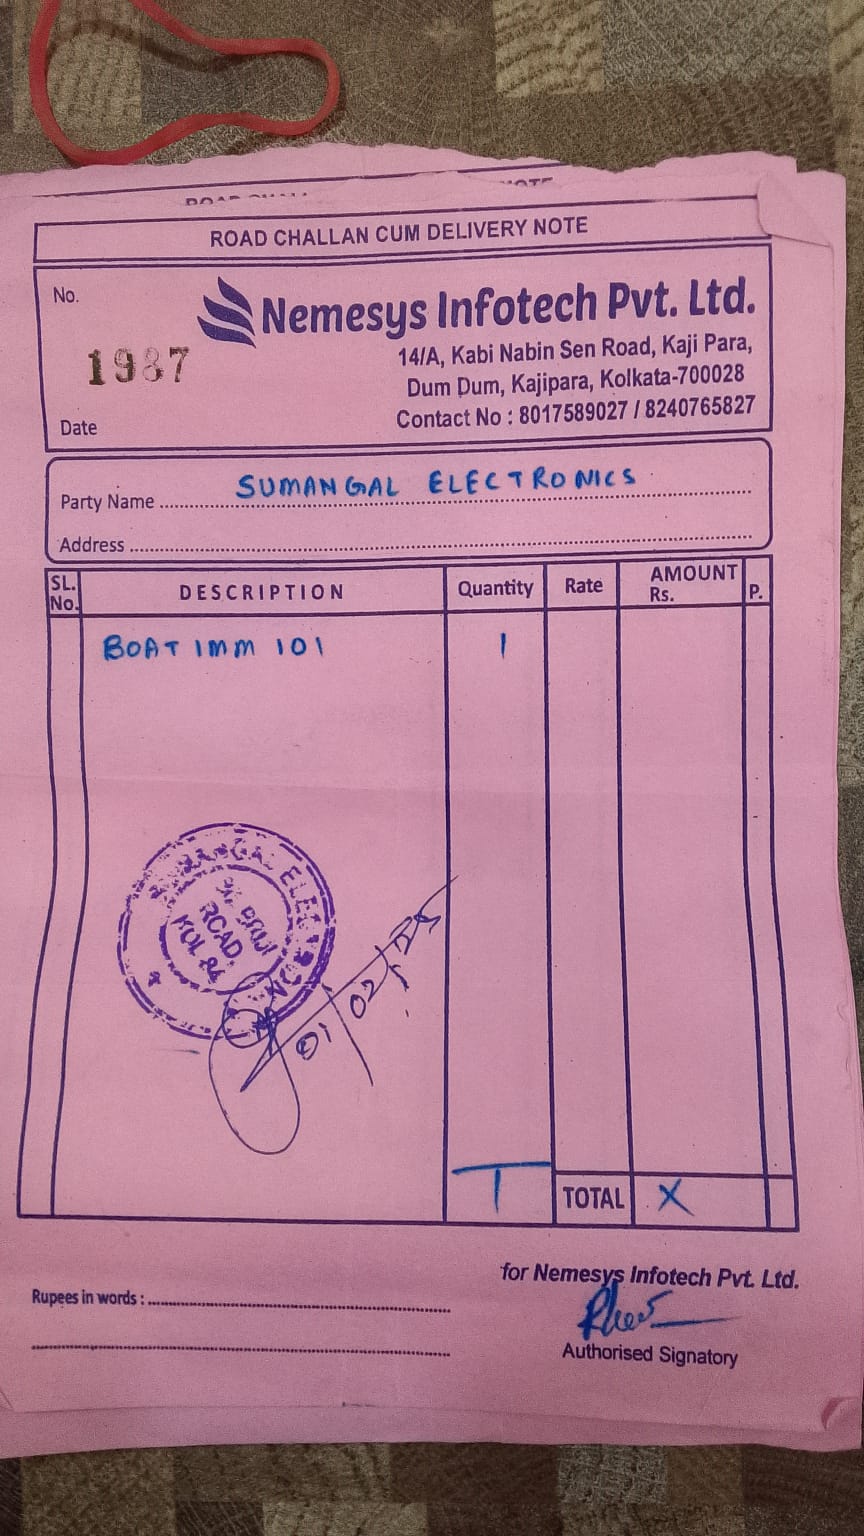 ROAD CHALLAN CUM DELIVERY NOTE
No.
1987
Nemesys Infotech Pvt. Ltd.
14/A, Kabi Nabin Sen Road, Kaji Para,
Dum Dum, Kajipara, Kolkata-700028
Contact No : 8017589027 / 8240765827
Date
Party Name SUMANGAL ELECTRONICS
Address
SL. No. DESCRIPTION Quantity Rate AMOUNT Rs. P.
BOAT IMM 101 1
ROAD
KOL 84
01/02/25
1 TOTAL X
for Nemesys Infotech Pvt. Ltd.
Rupees in words :
Authorised Signatory